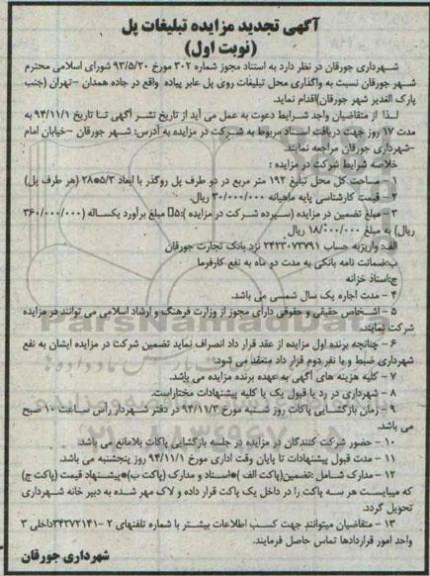 آگهی تجدید مزایده تبلیغات پل
(نوبت اول)
شهرداری جورقان در نظر دارد به استناد مجوز شماره ۳۰۲ مورخ ۹۳/۵/۲۰ شورای اسلامی محترم
شهر جورقان نسبت به واگذاری محل تبلیغات روی پل عابر پیاده واقع در جاده همدان –تهران (جنب
پارک الغدیر شهر جورقان)اقدام نماید.
لذا از متقاضیان واجد شرایط دعوت به عمل می آید از تاریخ نشر آگهی تا تاریخ ۹۴/۱۱/۱ به
مدت ۱۷ روز جهت دریافت اسناد مربوط به شرکت در مزایده به آدرس: شهر جورقان –خیابان امام
–شهرداری جورقان مراجعه نمایند.
خلاصه شرایط شرکت در مزایده :
۱ – مساحت کل محل تبلیغ ۱۹۲ متر مربع در دو طرف پل روگذر با ابعاد ۵/۳*۲۸ (هر طرف پل)
۲ – قیمت کارشناسی پایه ماهیانه ۳۰/۰۰۰/۰۰۰ ریال.
۳ – مبلغ تضمین در مزایده (سپرده شرکت در مزایده ):۵ مبلغ برآورد یکساله (۳۶۰/۰۰۰/۰۰۰
ریال) به مبلغ ۱۸/۰۰۰/۰۰۰ ریال
الف: واریزبه حساب ۲۴۲۳۰۷۳۷۹۱ نزد بانک تجارت جورقان
ب:ضمانت نامه بانکی به مدت دو ماه به نفع کارفرما
ج:اسناد خزانه
۴ – مدت اجاره یک سال شمسی می باشد.
۵ – اشخاص حقیقی و حقوقی دارای مجوز از وزارت فرهنگ و ارشاد اسلامی می توانند در مزایده
شرکت نمایند.
۶ – چنانچه برنده اول مزایده از عقد قرار داد انصراف نماید تضمین شرکت در مزایده ایشان به نفع
شهرداری ضبط و با نفر دوم قرار داد منعقد می شود.
۷ – کلیه هزینه های آگهی به عهده برنده مزایده می باشد.
۸ – شهرداری در رد یا قبول یک یا کلیه پیشنهادات مختاراست.
۹ – زمان بازگشایی پاکات روز شنبه مورخ ۹۴/۱۱/۳ در دفتر شهردار راس ساعت ۱۰ صبح
می باشد.
۱۰ – حضور شرکت کنندگان در مزایده در جلسه بازگشایی پاکات بلامانع می باشد.
۱۱ – مدت قبول پیشنهادات تا پایان وقت اداری مورخ ۹۴/۱۱/۱ روز پنجشنبه می باشد.
۱۲ – مدارک شامل :تضمین(پاکت الف )*اسناد و مدارک (پاکت ب)*پیشنهاد قیمت (پاکت ج)
که میبایست هر سه پاکت را در داخل یک پاکت قرار داده و لاک مهر شده به دبیر خانه شهرداری
تحویل گردد.
۱۳ – متقاضیان میتوانند جهت کسب اطلاعات بیشتر با شماره تلفنهای ۲ –۳۴۳۷۲۱۴۱داخلی ۳
واحد امور قراردادها تماس حاصل فرمایند.
شهرداری جورقان
ParsNamadData